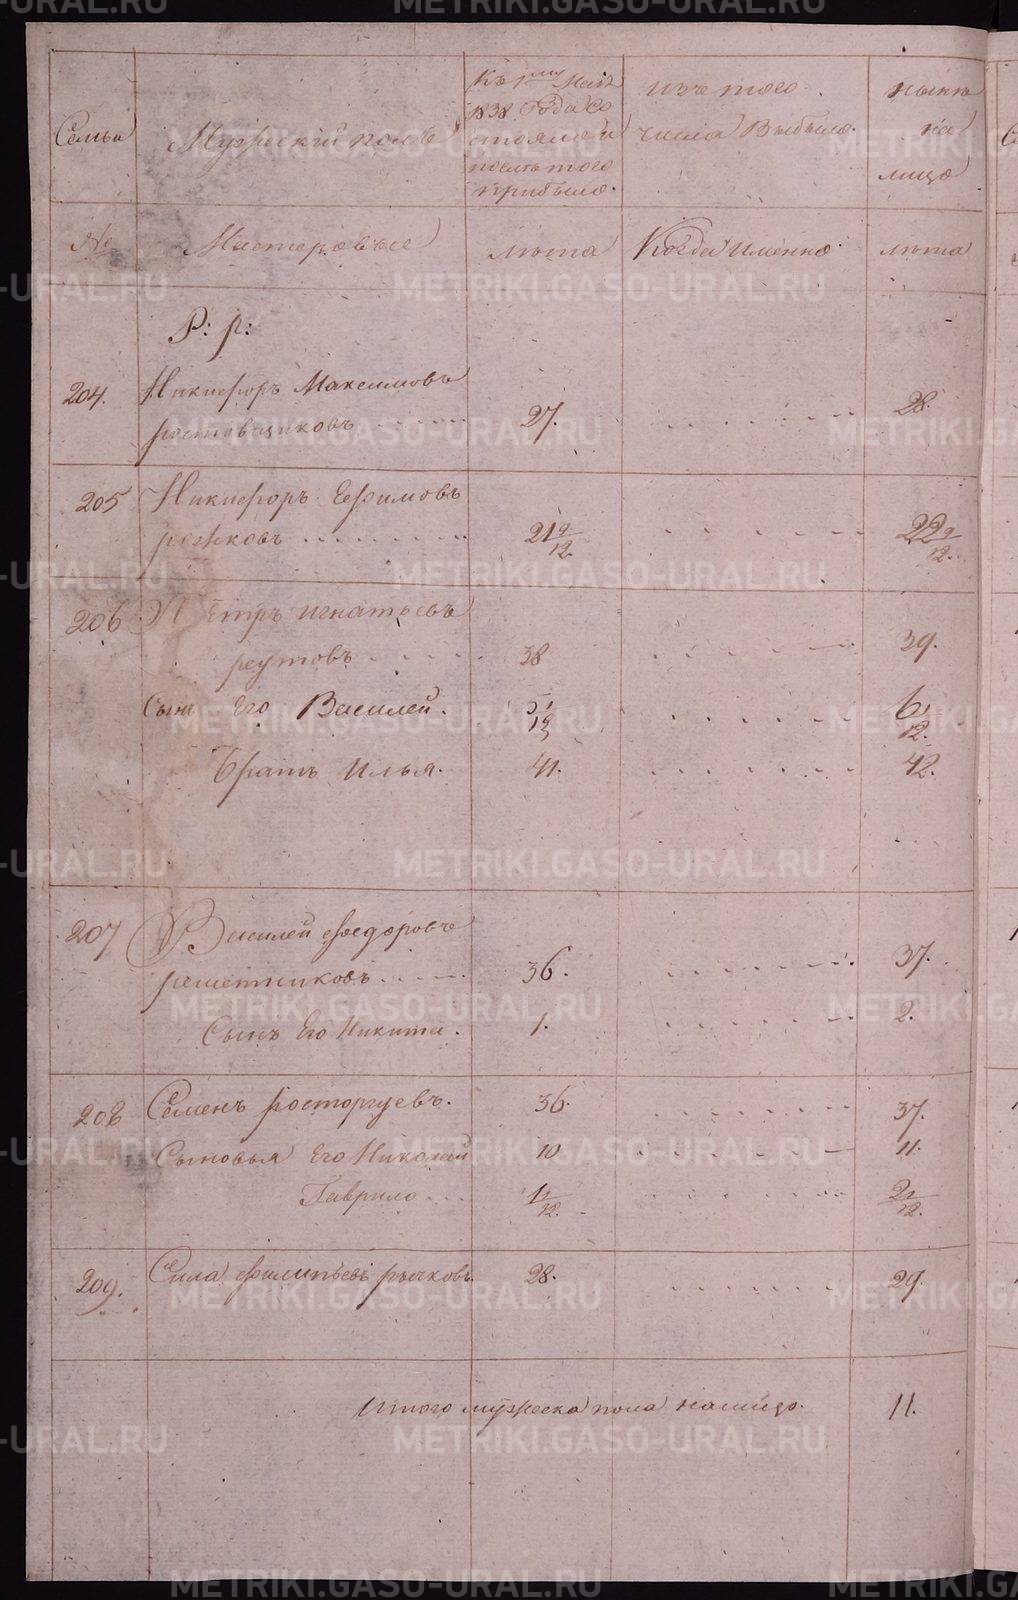 Семьи
Мужескій полъ
Къ 1му Маія
1838 Года со
стояло и
после того
прибыло.
изъ того
числа Выбыло.
ныне
на
лицо
№
Мастеровые
лѣта
Когда именно.
лѣта
Р: р:
204. Никифоръ Максимовъ
ростовщиковъ 27. 28.
205 Никифоръ Ефимовъ
рожковъ 21 9/12. 22 9/12.
206 Петръ игнатьевъ
реутовъ 38 39.
Сынъ Его Василей. 5 1/12 6 1/12.
Братъ Илья. 41. 42.
207 Василей Федоровъ
решетниковъ 36. 37.
Сынъ Его Никита. 1. 2.
208 Семенъ росторгуевъ. 36. 37.
Сыновья Его Николай 10 11.
Гаврило 1 1/12. 2 1/12.
209. Сила Филипьевъ рычковъ. 28. 29.
Итого мужеска пола налицо. 11.
METRIKI.GASO-URAL.RU